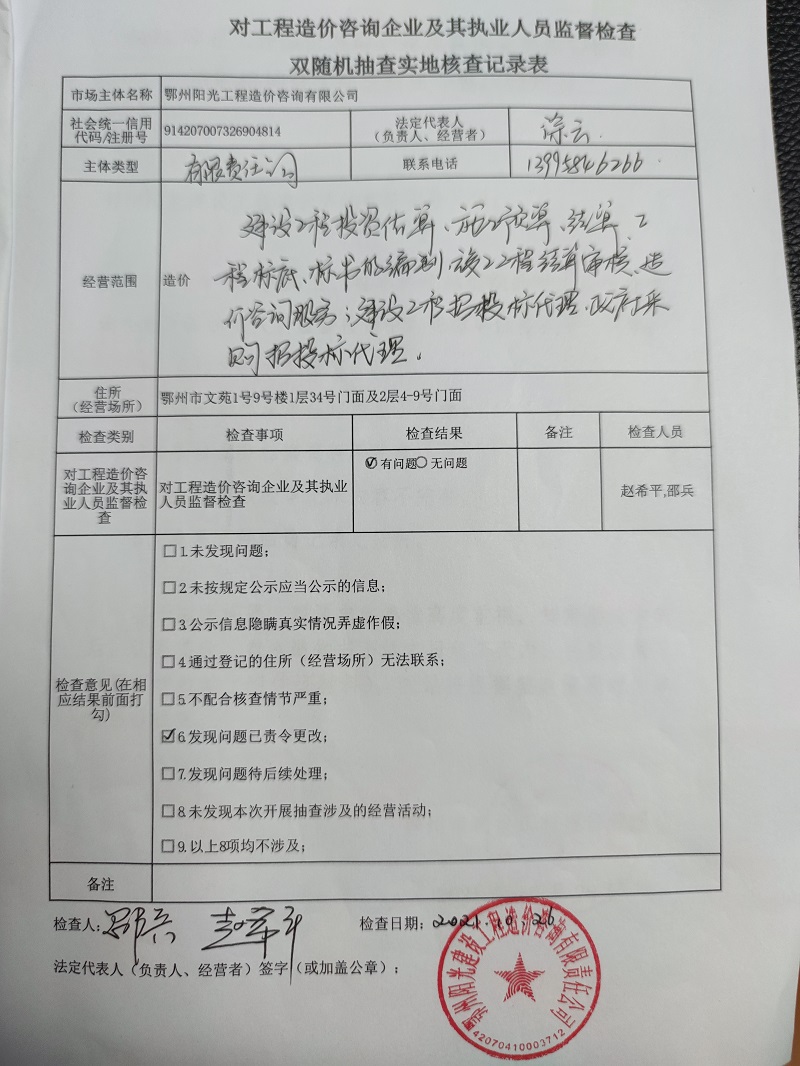 对工程造价咨询企业及其执业人员监督检查
双随机抽查实地核查记录表
市场主体名称 鄂州阳光工程造价咨询有限公司
社会统一信用代码/注册号 914207007326904814 法定代表人（负责人、经营者） 涂云
主体类型 有限责任公司 联系电话 13995846266
经营范围 造价
建设工程投资估算、施工预算、结算、工
程标底、标书的编制、竣工工程结算审核、造
价咨询服务；建设工程招投标代理、政府采
购招投标代理。
住所（经营场所） 鄂州市文苑1号9号楼1层34号门面及2层4-9号门面
检查类别 检查事项 检查结果 备注 检查人员
对工程造价咨询企业及其执业人员监督检查 对工程造价咨询企业及其执业人员监督检查 ☑有问题○无问题 赵希平,邵兵
检查意见(在相应结果前面打勾)
☐1.未发现问题；
☐2.未按规定公示应当公示的信息；
☐3.公示信息隐瞒真实情况弄虚作假；
☐4.通过登记的住所（经营场所）无法联系；
☐5.不配合核查情节严重；
☑6.发现问题已责令更改；
☐7.发现问题待后续处理；
☐8.未发现本次开展抽查涉及的经营活动；
☐9.以上8项均不涉及；
备注
检查人：邵兵 检查日期：2021.10.26
法定代表人（负责人、经营者）签字（或加盖公章）；
鄂州阳光建设工程造价咨询有限责任公司
42070410003712